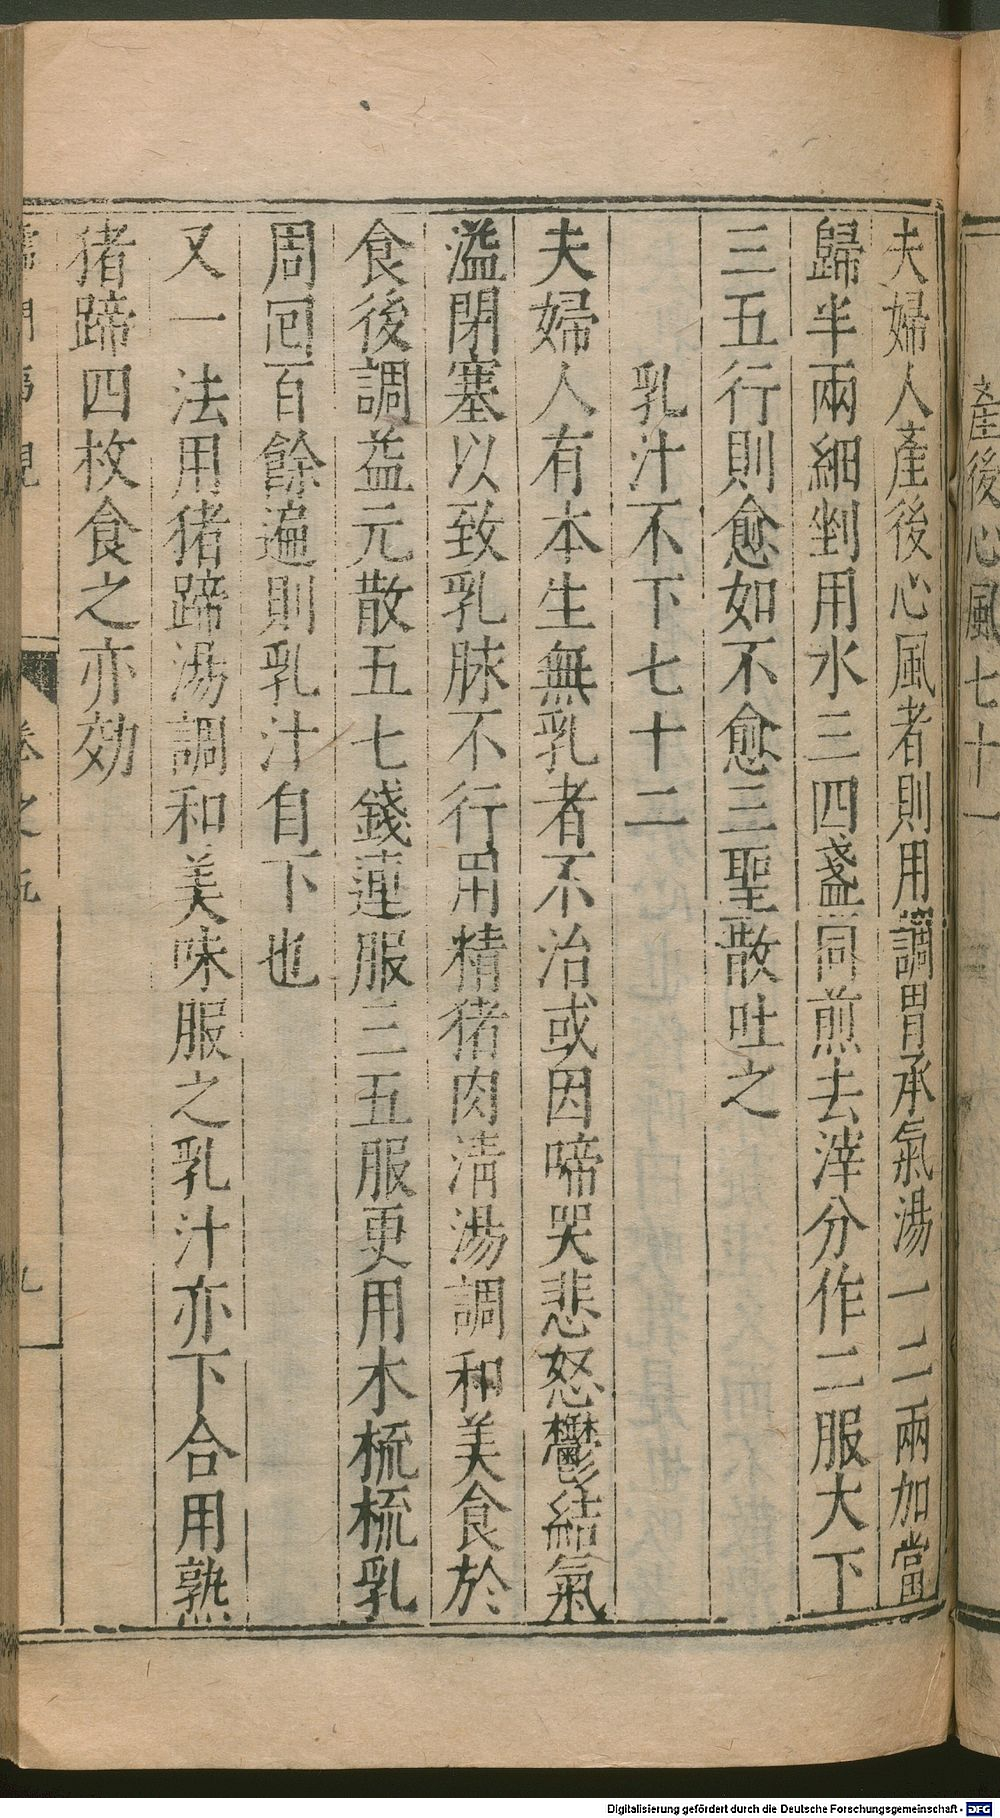 產後心風七十一
夫婦人產後心風者則用調胃承氣湯一二兩加當
歸半兩細剉用水三四盞同煎去滓分作二服大下
三五行則愈如不愈三聖散吐之
乳汁不下七十二
夫婦人有本生無乳者不治或因啼哭悲怒鬱結氣
溢閉塞以致乳脉不行用精猪肉淸湯調和美食於
食後調益元散五七錢連服三五服更用木梳梳乳
周回百餘遍則乳汁自下也
又一法用猪蹄湯調和美味服之乳汁亦下合用熟
猪蹄四枚食之亦効
卷之五
九
Digitalisierung gefördert durch die Deutsche Forschungsgemeinschaft - DFG